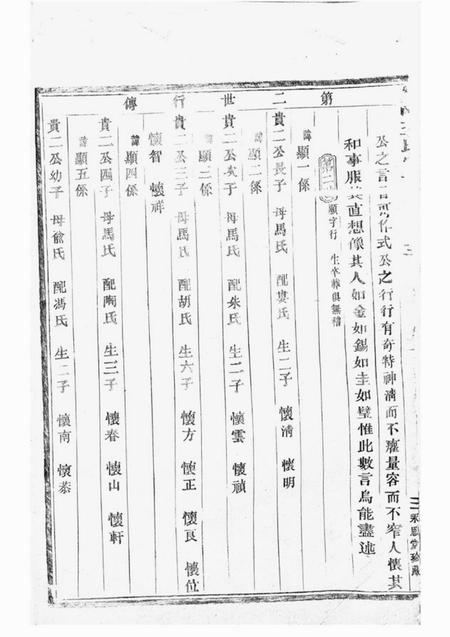 公之言言可作式公之行行有奇特神清而不癯量容而不窄人懷其
和事服其直想像其人如金如錫如圭如璧惟此數言烏能盡述
第二世行傳
第二 顯字行 生卒葬俱無稽
諱顯一係
貴二公長子 母馬氏 配婁氏 生二子 懷清 懷明
諱顯二係
貴二公次子 母馬氏 配朱氏 生二子 懷雲 懷禎
諱顯三係
貴二公三子 母馬氏 配胡氏 生六子 懷方 懷正 懷良 懷位
懷智 懷祥
諱顯四係
貴二公四子 母馬氏 配陶氏 生三子 懷春 懷山 懷軒
諱顯五係
貴二公幼子 母俞氏 配馮氏 生二子 懷南 懷泰
三 承恩堂珍藏